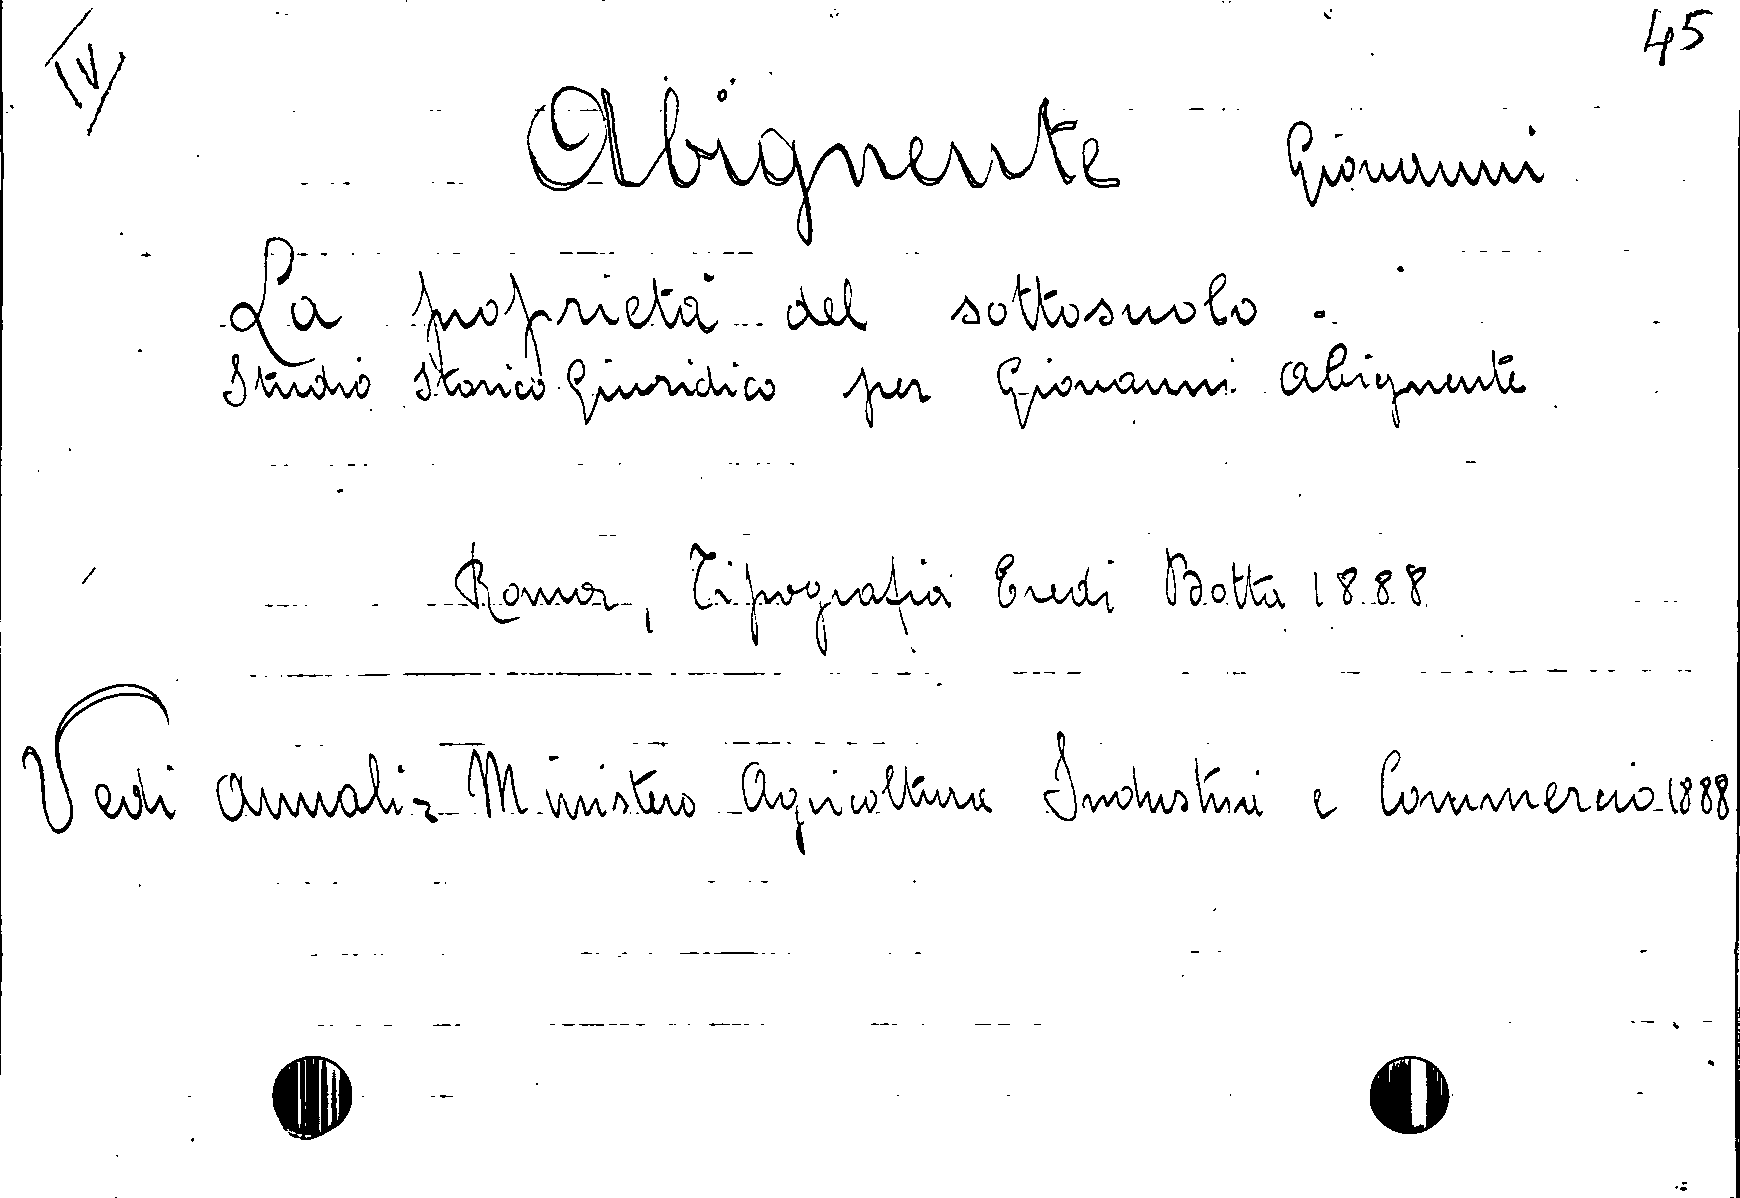 IV 45
Abignente Giovanni
La proprietà del sottosuolo.
Studio Storico Giuridico per Giovanni Abignente
Roma, Tipografia Eredi Botta 1888
Vedi Annali - Ministero Agricoltura Industria e Commercio 1888